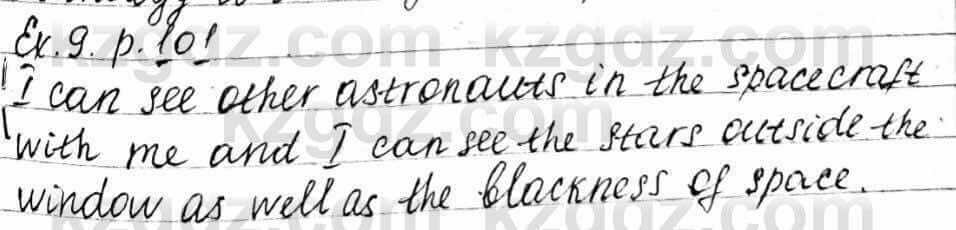 Ex. 9. p. 101
I can see other astronauts in the spacecraft
with me and I can see the stars outside the
window as well as the blackness of space.